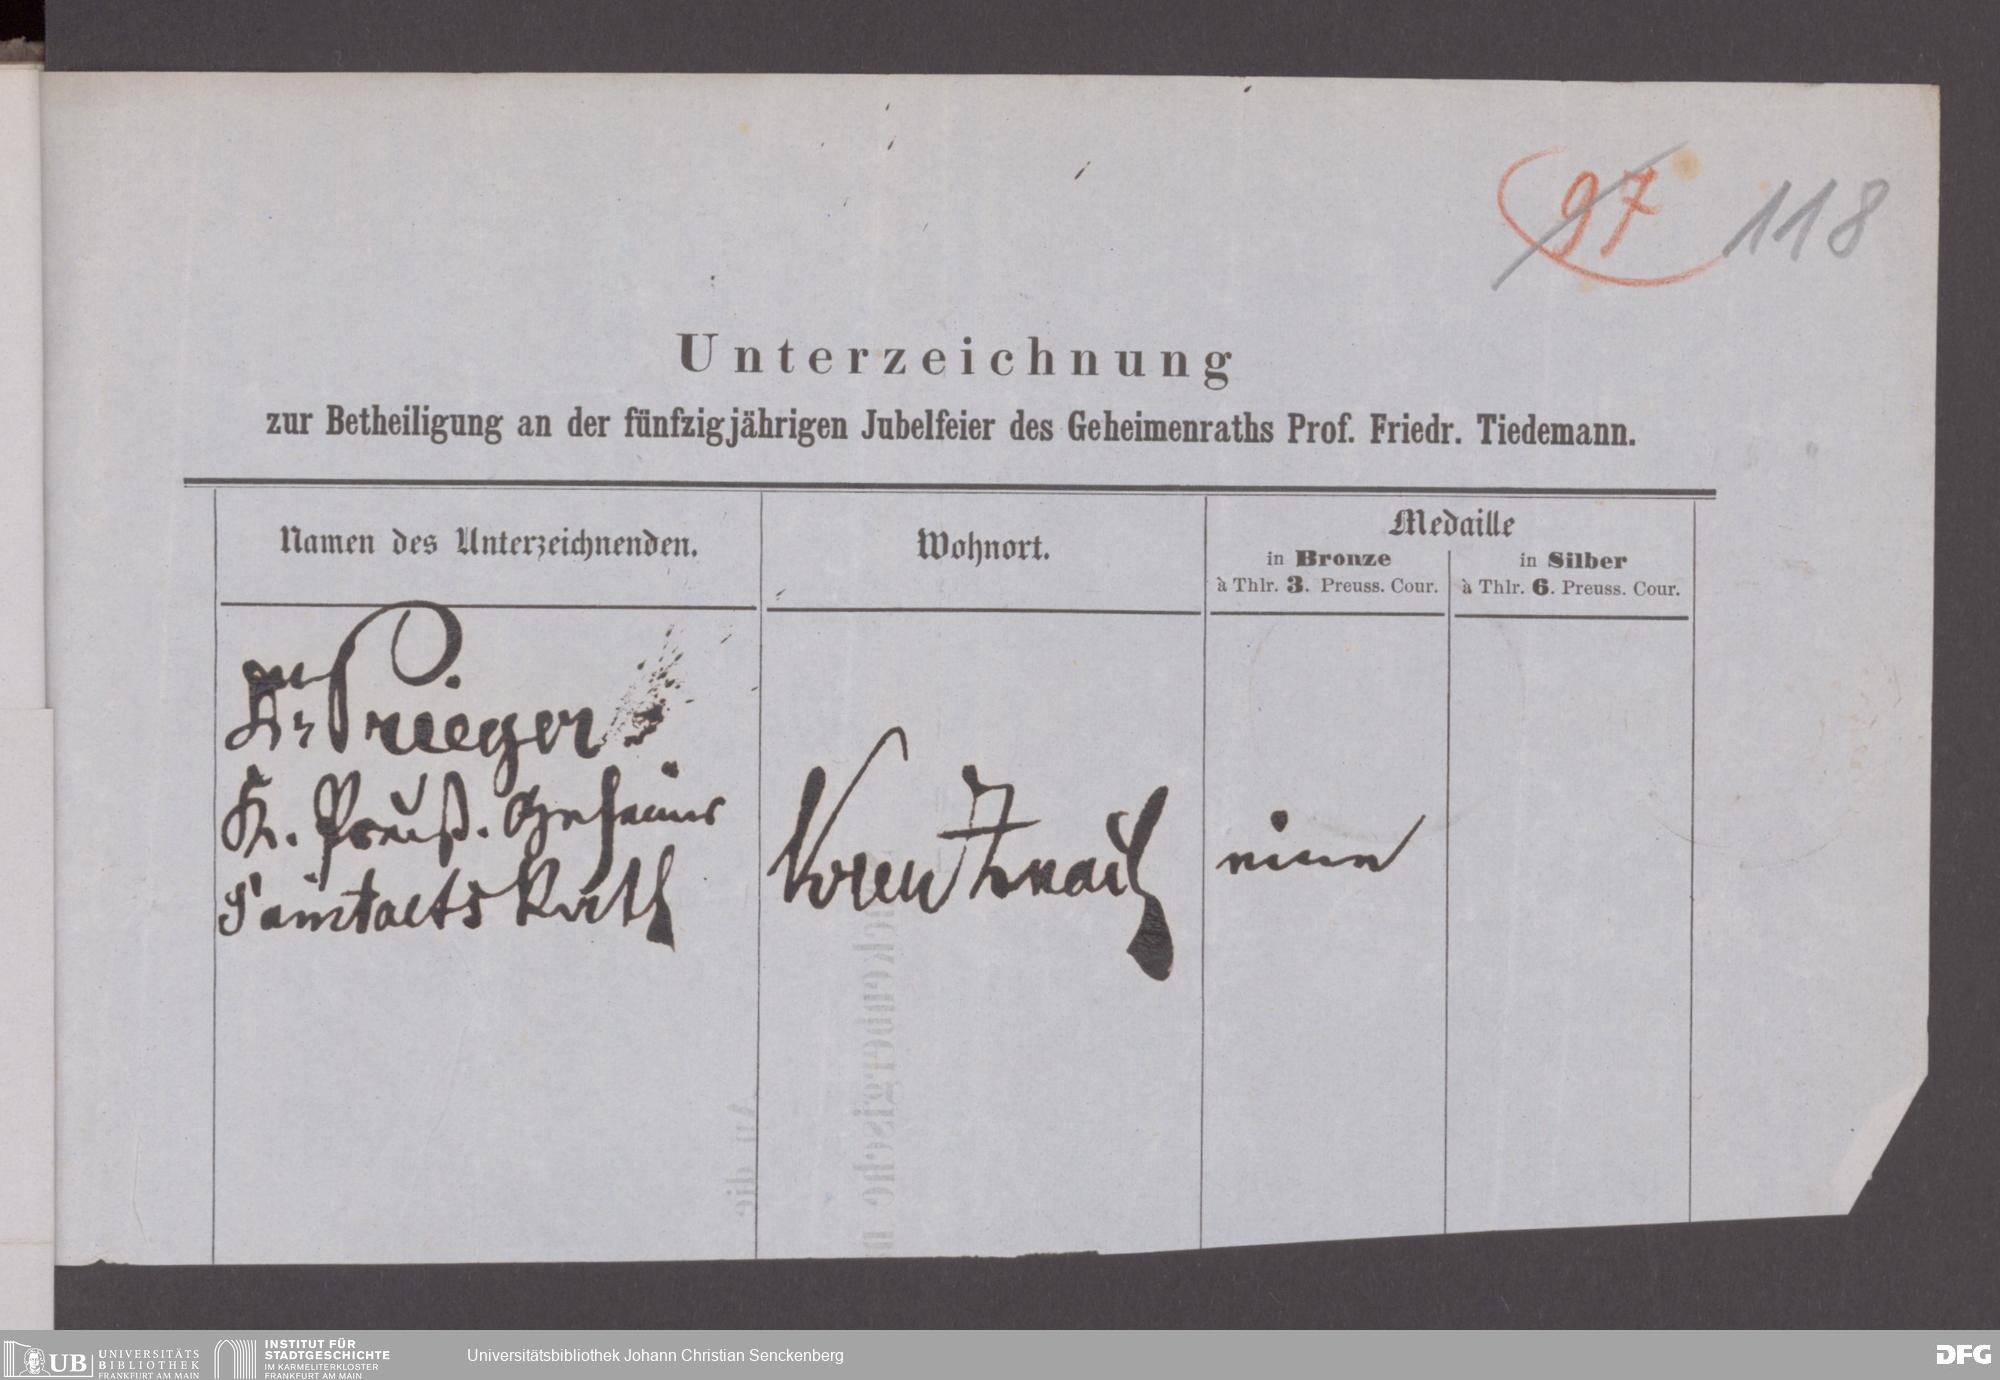 97 118
Unterzeichnung
zur Betheiligung an der fünfzigjährigen Jubelfeier des Geheimenraths Prof. Friedr. Tiedemann.
Namen des Unterzeichnenden.
Wohnort.
Medaille
in Bronze
à Thlr. 3. Preuss. Cour.
in Silber
à Thlr. 6. Preuss. Cour.
Dr Prieger
K. Preuß. Geheimer
Sanitaets Rath
Kreuznach
eine
UB UNIVERSITÄTS
BIBLIOTHEK
FRANKFURT AM MAIN
INSTITUT FÜR
STADTGESCHICHTE
IM KARMELITERKLOSTER
FRANKFURT AM MAIN
Universitätsbibliothek Johann Christian Senckenberg
DFG